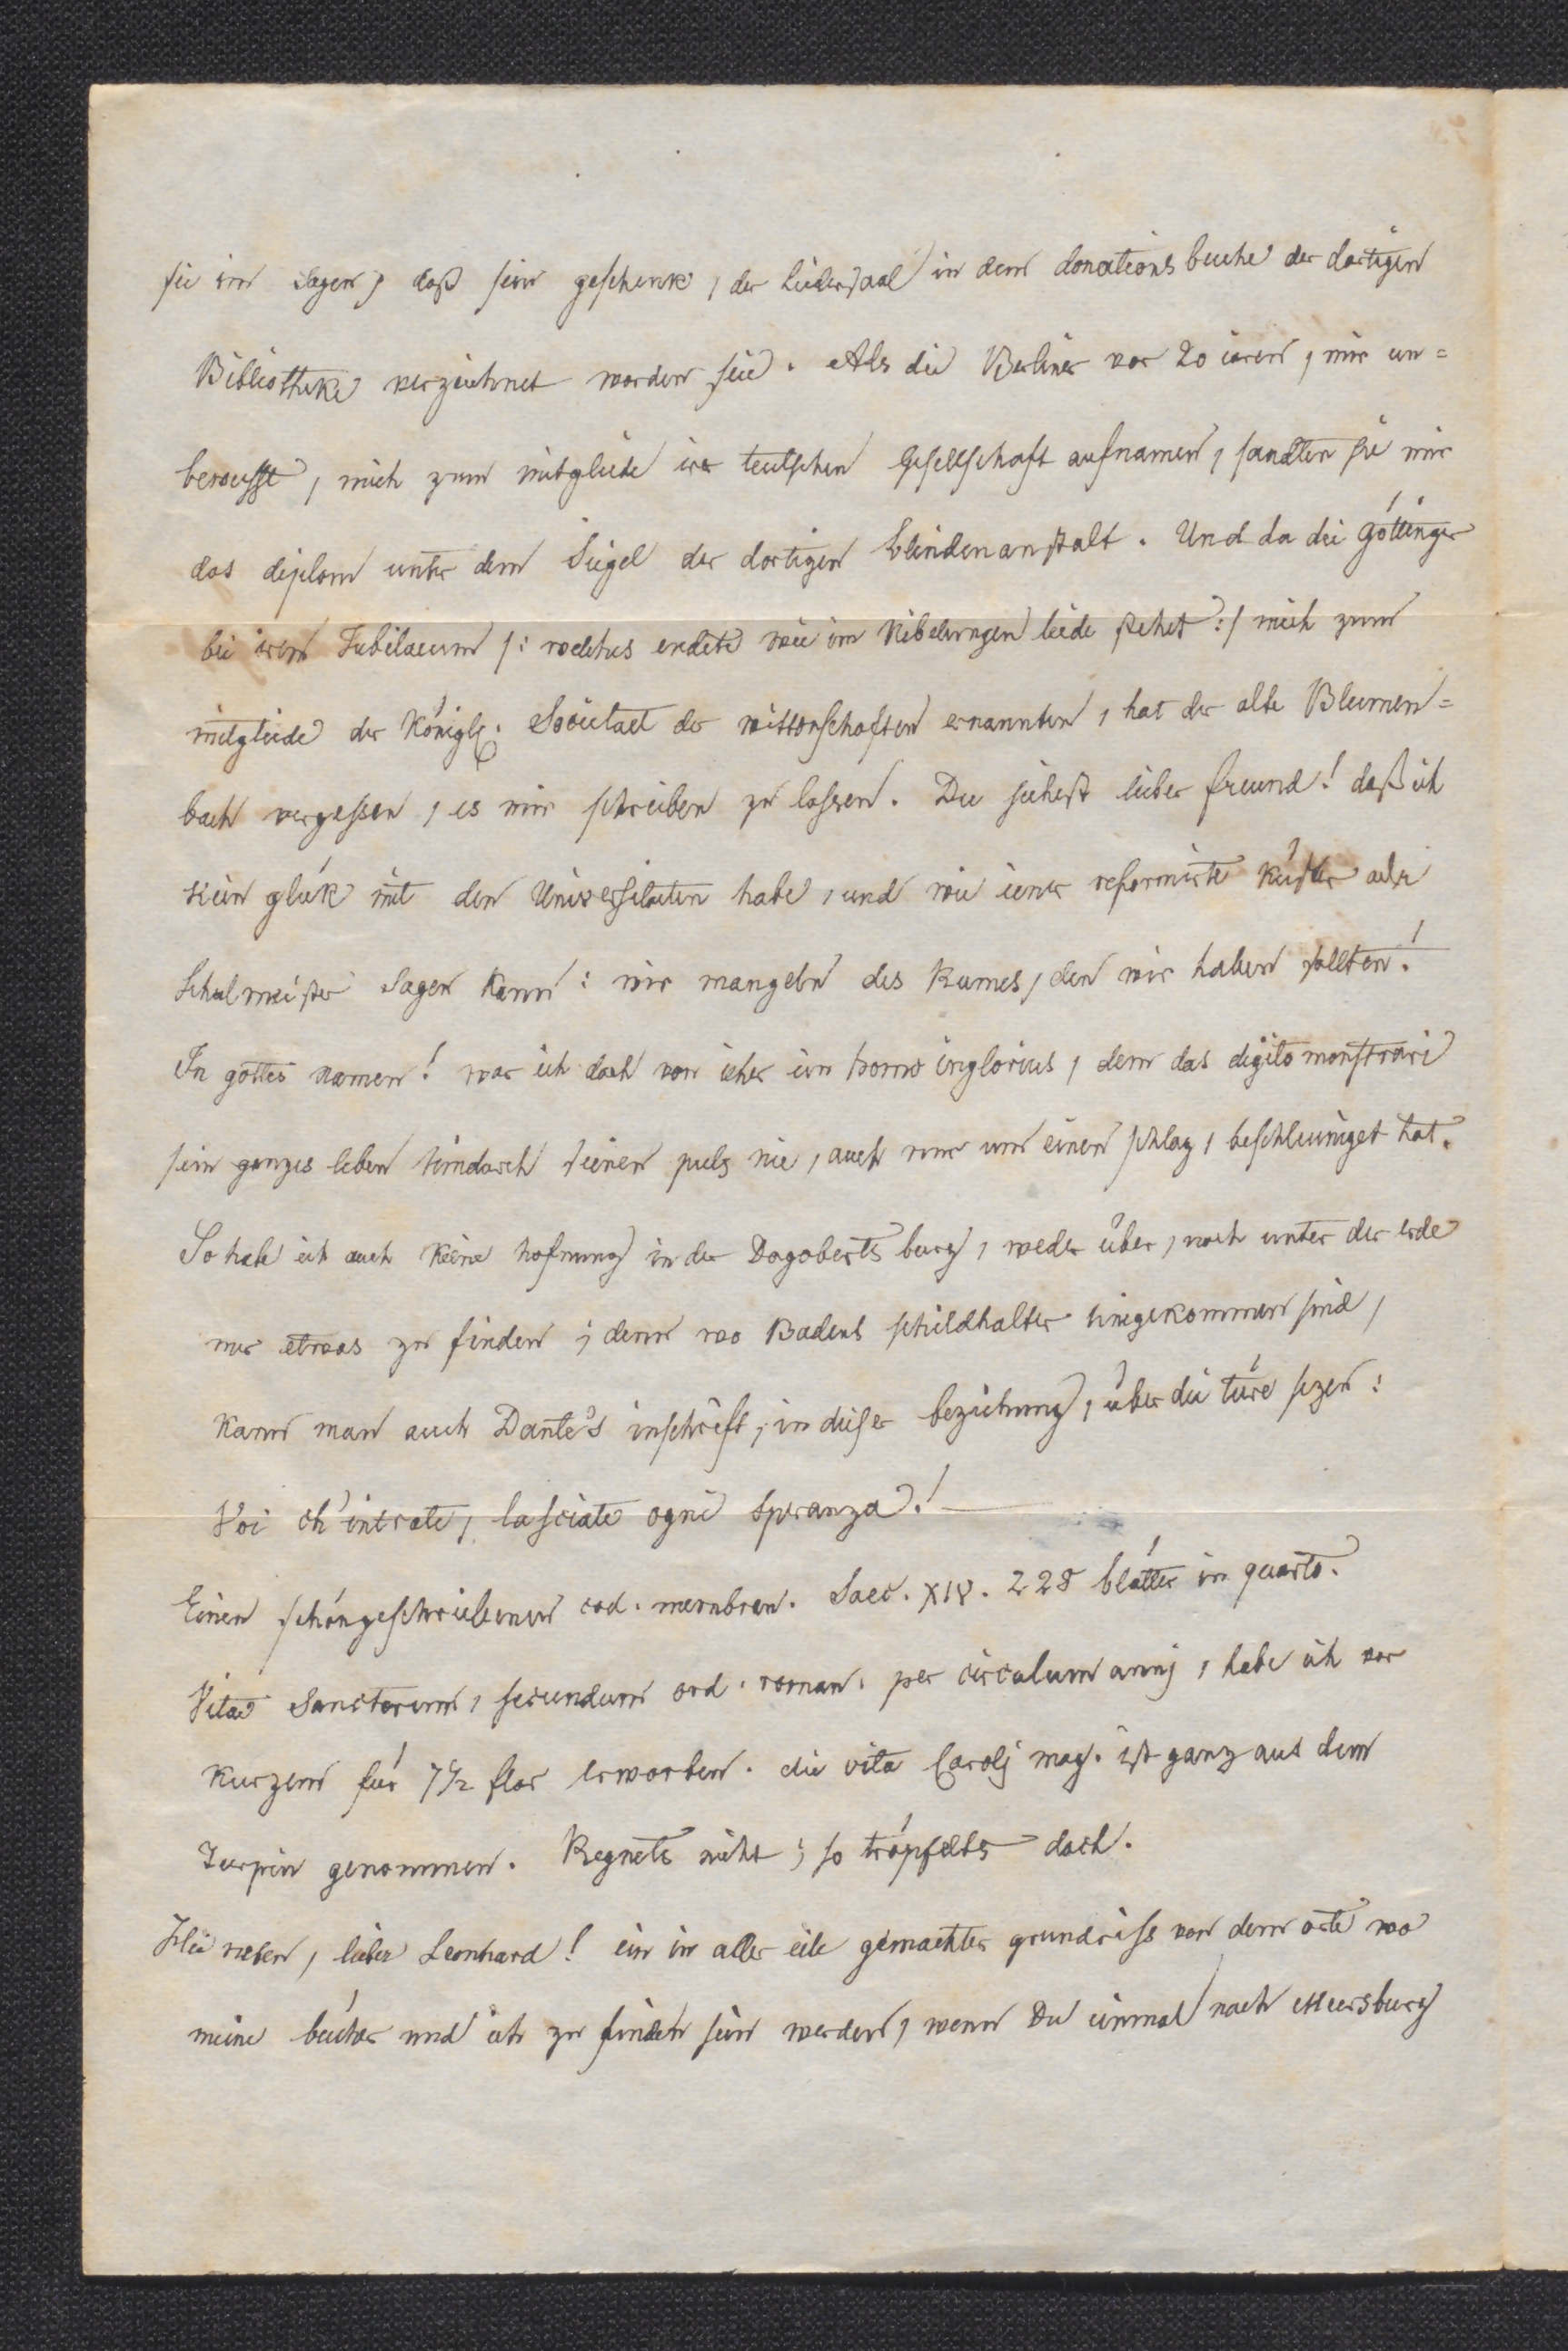 sie im sagen, daß sein geschenk, der Liedersaal in dem donationsbuche der dortigen
Bibliotheke verzeichnet worden seie. Als die Berliner vor 20 iaren, mir un=
bewusst, mich zum mitgliede irer teutschen Gesellschaft aufnamen, sandten sie mir
das diplom unter dem Siegel der dortigen blindenanstalt. Und da die Göttinger
bei irem Jubilaeum /: welches endete wie im Nibelungen liede stehet :/ mich zum
mitgliede der Königl. Societaet der wissenschaften ernannten, hat der alte Blumen=
bach vergessen, es mir schreiben zu lassen. Du siehest lieber freund! daß ich
kein glük mit den Universitaeten habe, und wie iener reformirte küster oder
Schulmeister sagen kann: wir mangeln des Rumes, den wir haben sollten!
In gottes namen! war ich doch von ieher ein homo inglorius, dem das digito monstrari
sein ganzes leben hindurch seinen puls nie, auch nur um einen schlag, beschleuniget hat.
So habe ich auch keine hofnung in der Dagoberts burg, weder über, noch unter der erde
nur etwas zu finden; denn wo Badens schildhalter hingekommen sind,
kann man auch Dante's inschrift, in dieser beziehung, über die türe sezen:
Voi ch'intrate, lasciate ogni speranza!
Einen schöngeschriebenen cod. membran. Saec. XIV. 228 blätter in quarto.
Vitae Sanctorum, secundum ord. roman. per circulum annj, habe ich vor
kurzem für 7 1/2 flor erworben. die vita Carolj mag. ist ganz aus dem
Turpin genommen. Regnets nicht; so tröpfelts doch.
Hie neben, lieber Leonhard! ein in aller eile gemachter grundriss von dem orte wo
meine bücher und ich zu finden sein werden, wenn Du einmal nach Meersburg